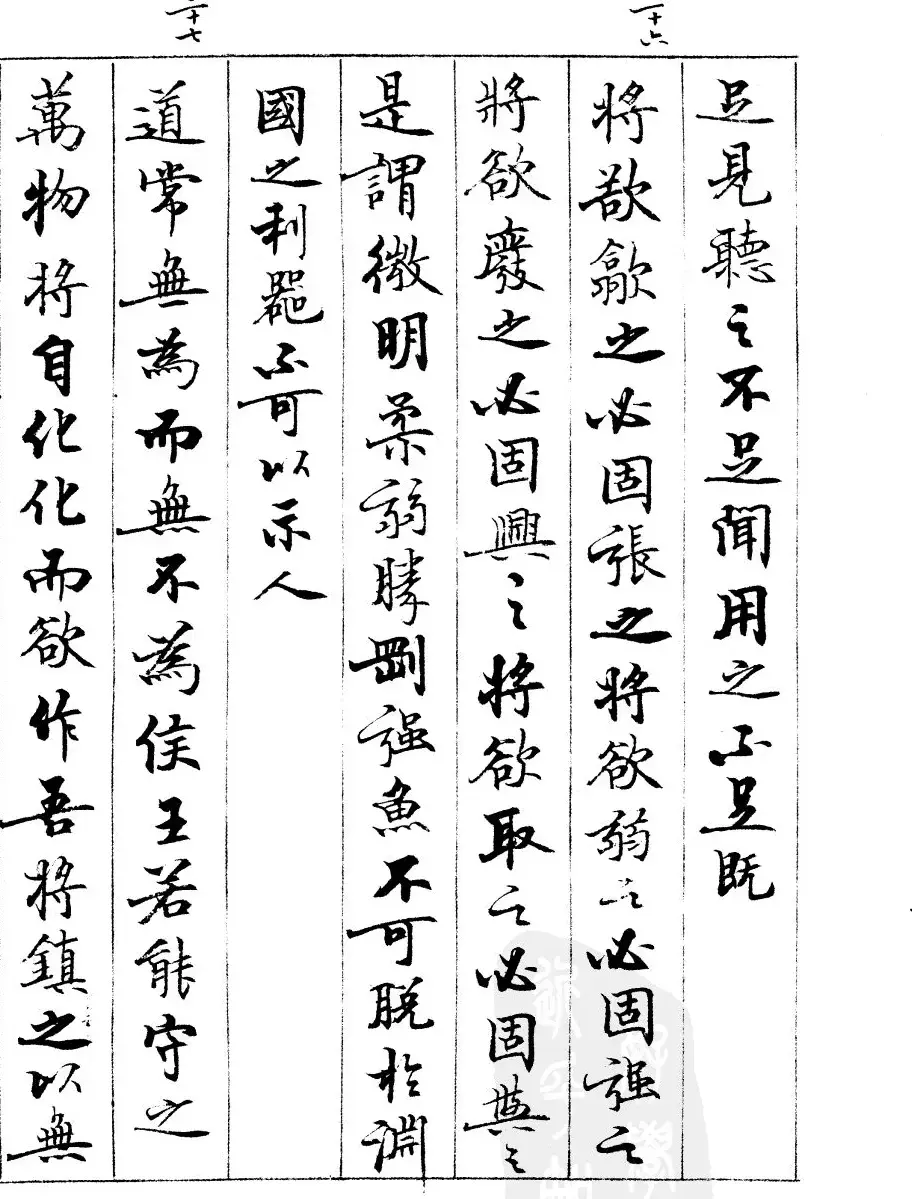 十六
足見聽之不足聞用之不足既
將欲歙之必固張之將欲弱之必固强之
將欲廢之必固興之將欲取之必固與之
是謂微明柔弱勝剛强魚不可脱於淵
國之利器不可以示人
十七
道常無為而無不為侯王若能守之
萬物將自化化而欲作吾將鎮之以無